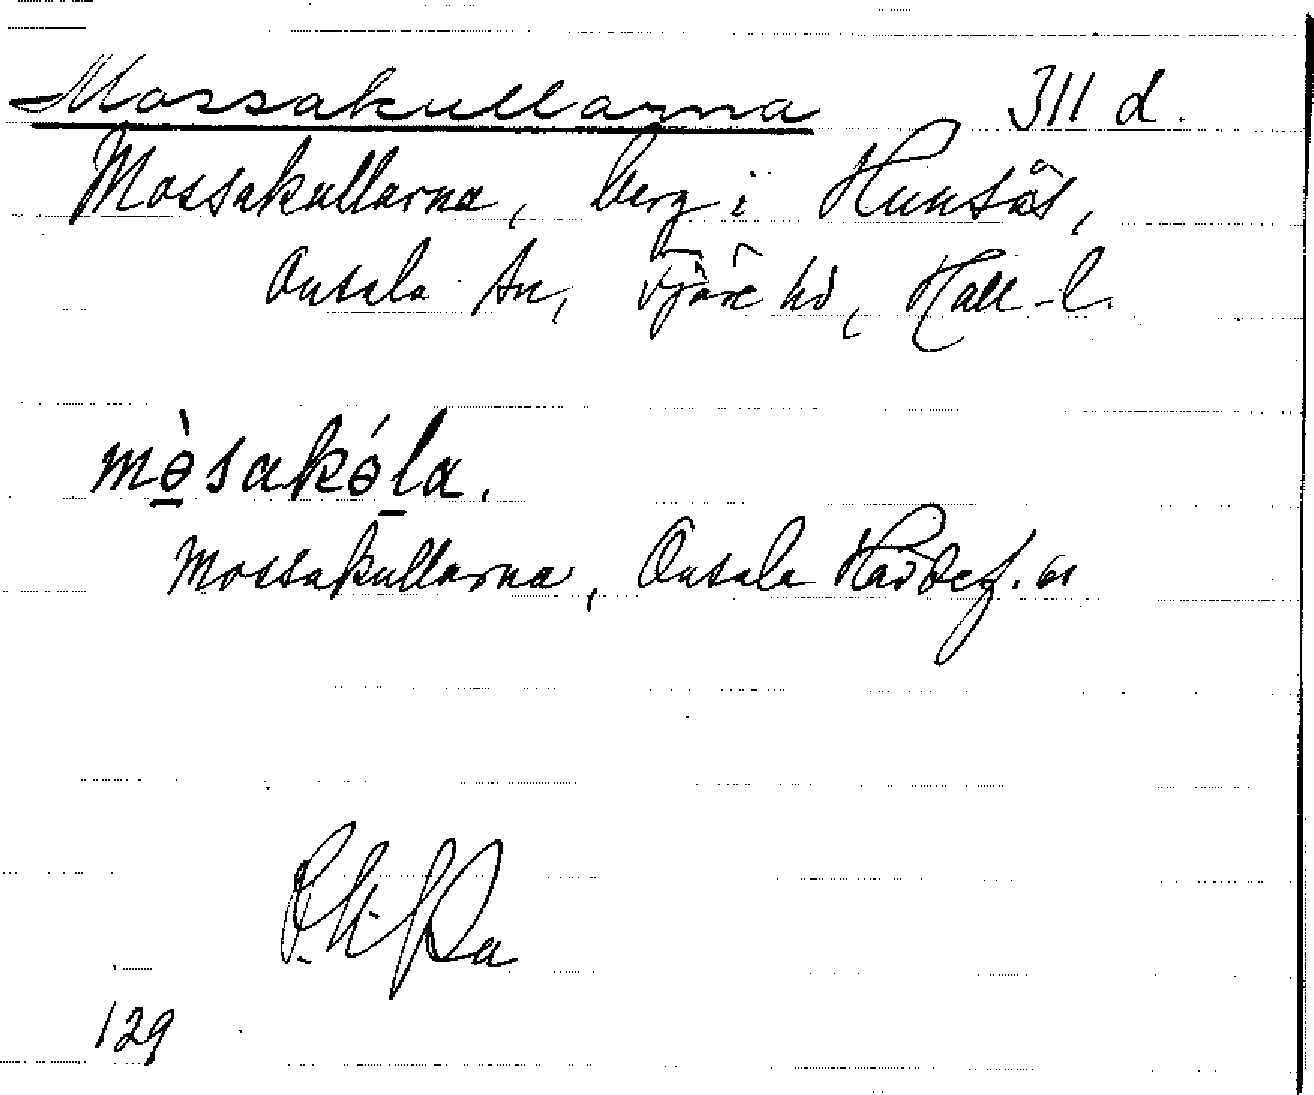 Mossakullarna 311 d.
Mossakullarna, berg i Hunsås,
Onsala sn, Fjäre hd, Hall-l.
mȯ̱sakó̱la.
Mossakullarna, Onsala
129